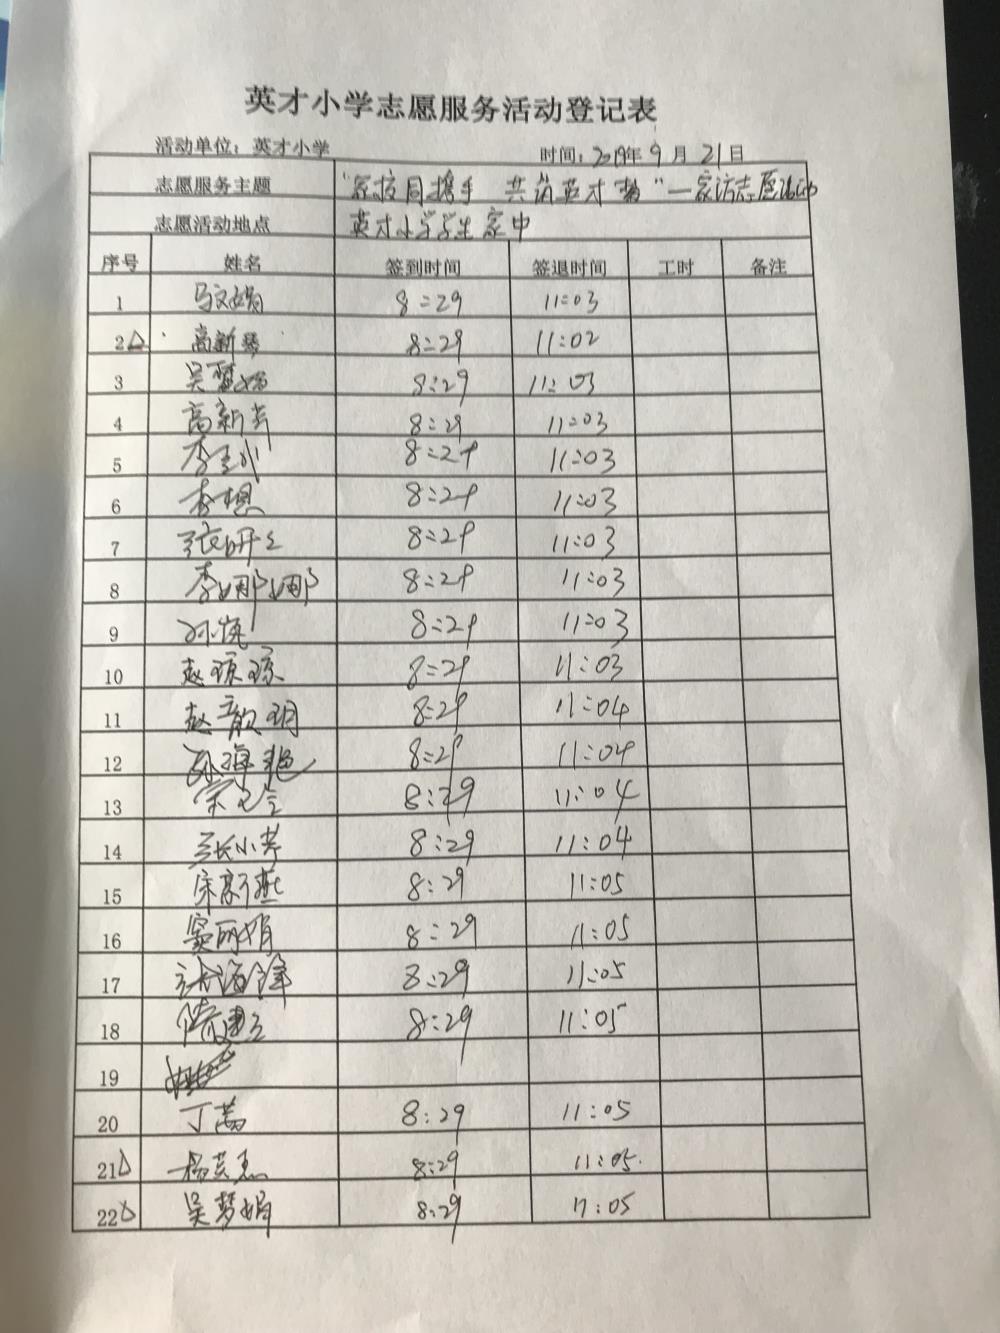 英才小学志愿服务活动登记表
活动单位：英才小学 时间：2019年9月21日
志愿服务主题 "家校同携手 共筑英才梦"—家访志愿活动
志愿活动地点 英才小学学生家中
序号 姓名 签到时间 签退时间 工时 备注
1 马文娟 8:29 11:03
2△ 高新琴 8:29 11:02
3 吴梦娟 8:29 11:03
4 高新芳 8:29 11:03
5 李 8:29 11:03
6 李想 8:29 11:03
7 张妍 8:29 11:03
8 李娜娜 8:29 11:03
9 孙 8:29 11:03
10 赵琼琼 8:29 11:03
11 赵歆玥 8:29 11:04
12 孙海艳 8:29 11:04
13 宋 8:29 11:04
14 张小芹 8:29 11:04
15 宋新燕 8:29 11:05
16 窦丽娟 8:29 11:05
17 海锋 8:29 11:05
18 8:29 11:05
19
20 丁嵩 8:29 11:05
21△ 杨英惠 8:29 11:05.
22△ 吴梦娟 8:29 11:05